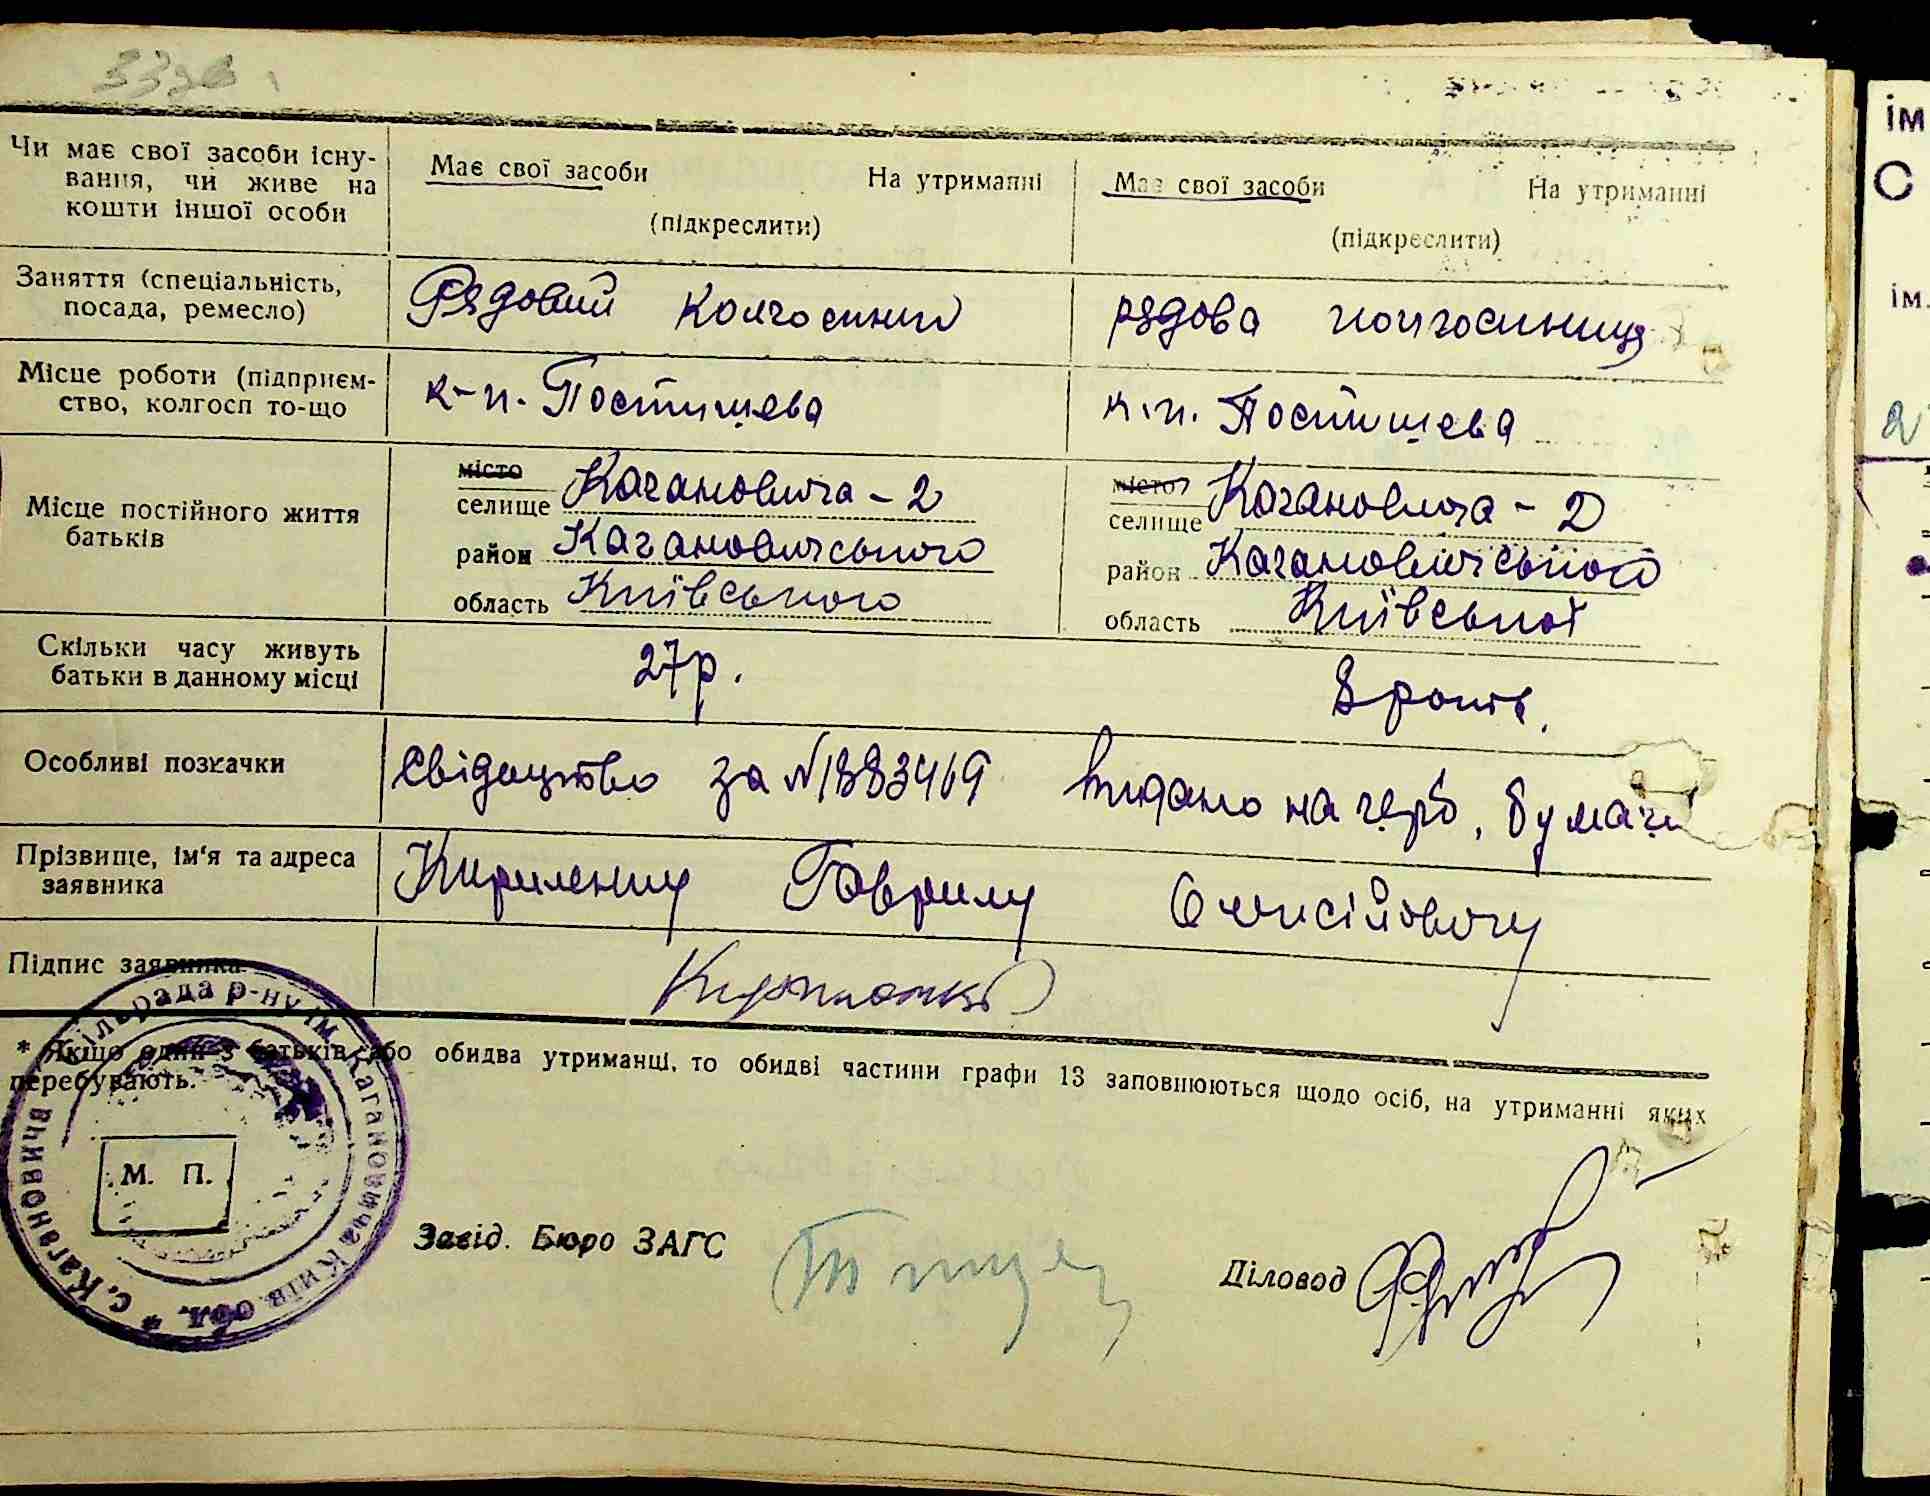 Чи має свої засоби існу-
вання, чи живе на
кошти іншої особи
Має свої засоби На утриманні
(підкреслити)
Має свої засоби На утриманні
(підкреслити)
Заняття (спеціальність,
посада, ремесло)
Рядовий колгосник
рядова колгосниця
Місце роботи (підприєм-
ство, колгосп то-що
к-п. Постишева
к.п. Постишева
Місце постійного життя
батьків
місто
селище Кагановича - 2
район Кагановичського
область Київського
місто
селище Кагановича - 2
район Кагановичського
область Київської
Скільки часу живуть
батьки в данному місці
27р.
8 років.
Особливі позначки
Свідоцтво за № 1883469 видано на герб. бумаги
Прізвище, ім'я та адреса
заявника
Кириленку Гаврилу Олексійовичу
Підпис заявника
* Якщо один з батьків або обидва утриманці, то обидві частини графи 13 заповнюються щодо осіб, на утриманні яких
перебувають.
Сільрада р-ну ім. Кагановича Київ. обл. * с. Кагановичі
М. П.
Завід. Бюро ЗАГС
Діловод
ім
С
ім.